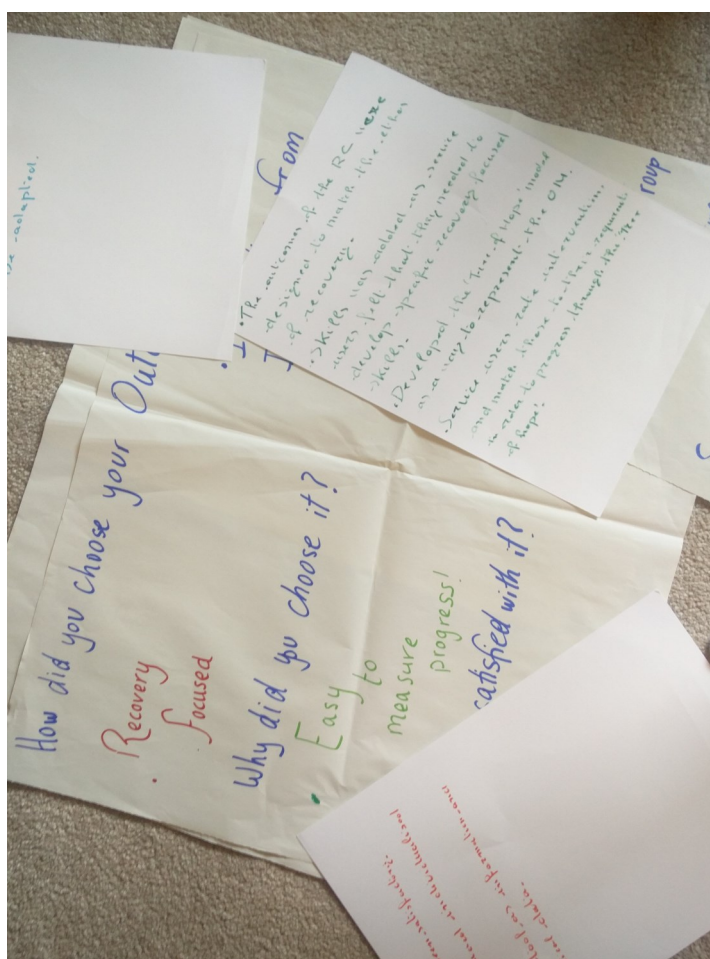 How did you choose your Out
• Recovery
focused
Why did you choose it?
• Easy to
measure
progress!
satisfied with it?
from
roup
• The outcomes of the RC were
designed to match the ethos
of recovery.
• Skills was added as service
users felt that they needed to
develop specific recovery focused
skills.
• Developed the 'Tree of Hope' model
as a way to represent the OM.
• Service users take intervention
and match these to their
in order to progress through the 'Tree
of hope'.
adapted.